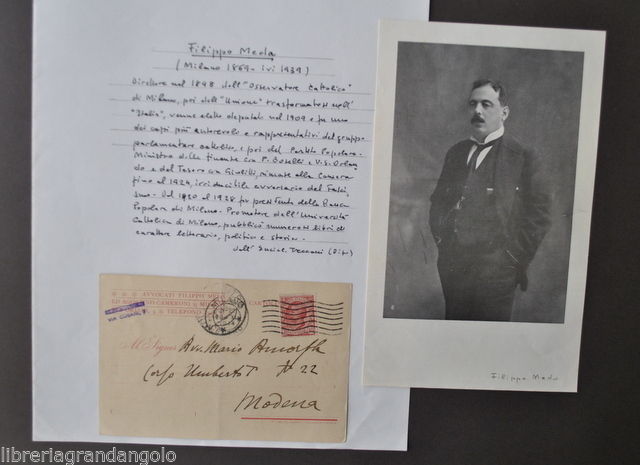 Filippo Meda
(Milano 1869 - ivi 1939)
Direttore nel 1898 dell'"Osservatore Cattolico"
di Milano, poi dell'"Unione" trasformatosi nell'
"Italia", venne eletto deputato nel 1909 e fu uno
dei capi più autorevoli e rappresentativi del gruppo
parlamentare cattolico, e poi del Partito Popolare.
Ministro delle finanze con P. Boselli e V.E. Orlan
do e del Tesoro con Giolitti, rimase alla Camera
fino al 1924, irriducibile avversario del Fasci
smo. Dal 1920 al 1938 fu presidente della Banca
Popolare di Milano. Promotore dell'Università
Cattolica di Milano, pubblicò numerosi libri di
carattere letterario, politico e storico.
dall' Treccani
AVVOCATI FILIPPO MEDA
CAMERONI
TELEFONO
Al Signor Avv. Mario
Corso Umberto I N° 22
Modena
Filippo Meda
libreriagrandangolo